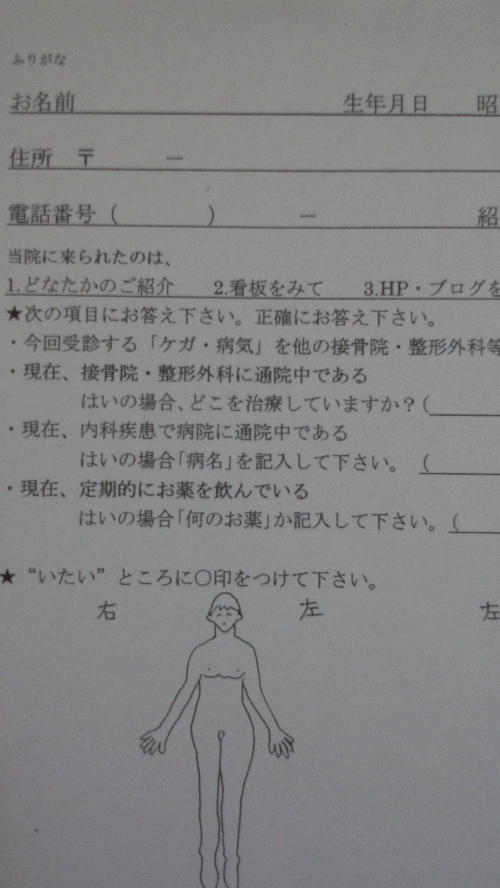 ふりがな
お名前 生年月日 昭
住所 〒 －
電話番号（ ） － 紹
当院に来られたのは、
1.どなたかのご紹介 2.看板をみて 3.HP・ブログを
★次の項目にお答え下さい。正確にお答え下さい。
・今回受診する「ケガ・病気」を他の接骨院・整形外科等
・現在、接骨院・整形外科に通院中である
はいの場合、どこを治療していますか？（
・現在、内科疾患で病院に通院中である
はいの場合「病名」を記入して下さい。（
・現在、定期的にお薬を飲んでいる
はいの場合「何のお薬」か記入して下さい。（
★“いたい”ところに〇印をつけて下さい。
右 左 左